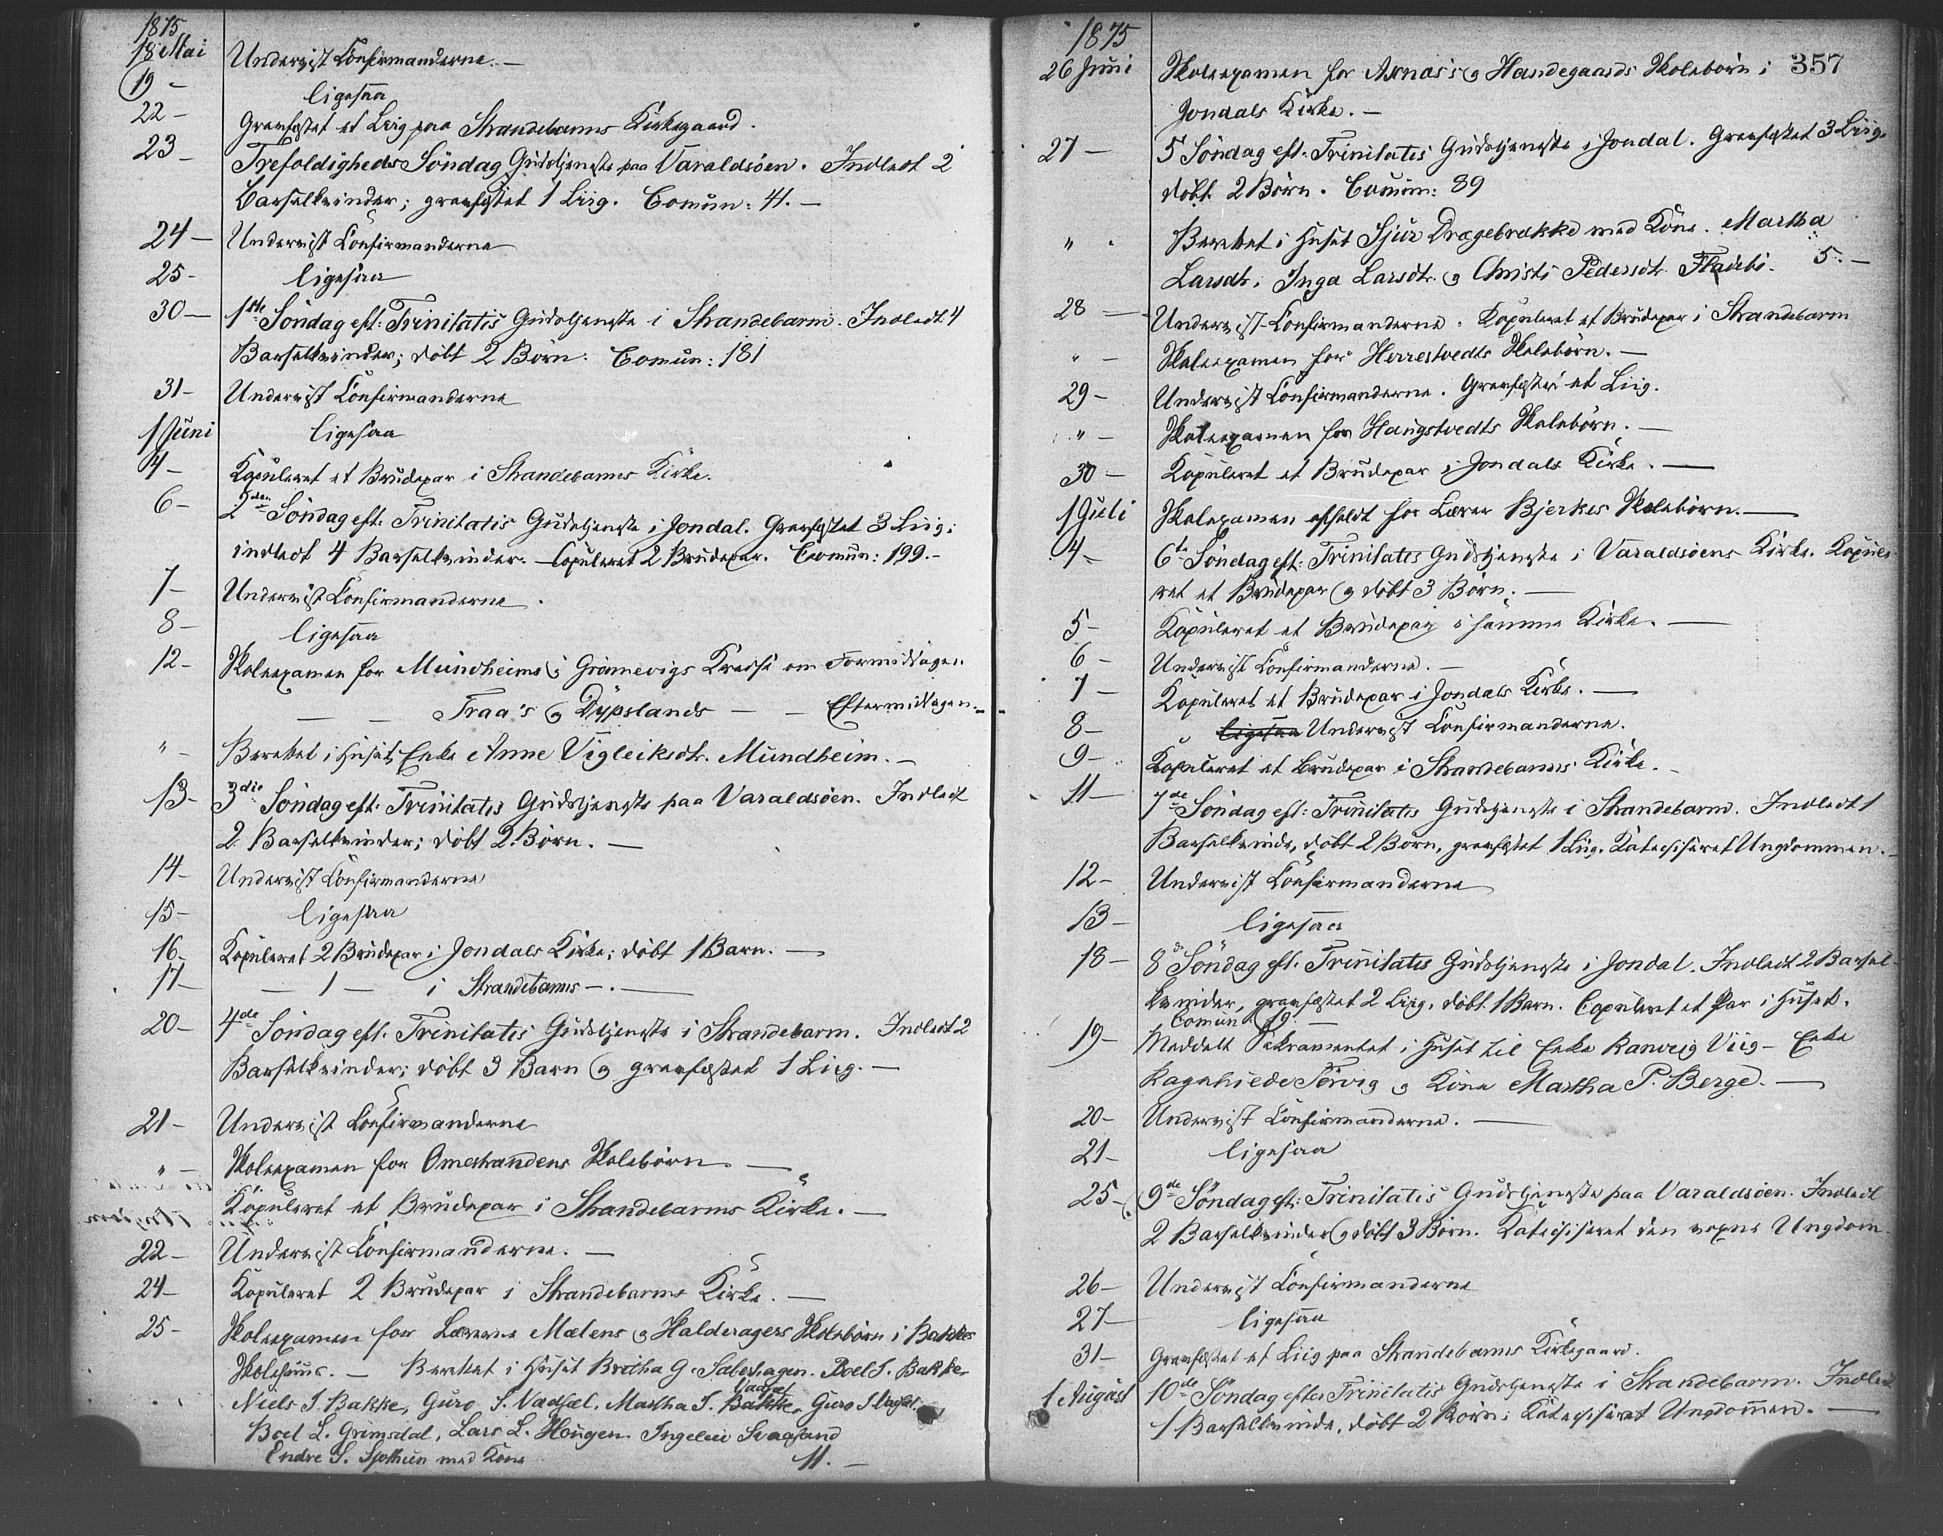 1875
18 Mai Undervist Confirmanderne. —
19 — ligesaa
22 — Græsfæstet et Liig paa Strandebarms Kirkegaard.
23 — Trefoldigheds Söndag Gudstjeneste paa Varaldsöen. Indledt 2
Barselkvinder; græsfæstet 1 Liig. Comun: 4. —
24 — Undervist Confirmanderne
25 — ligesaa
30 — 1ste Söndag eft. Trinitatis Gudstjeneste i Strandebarm. Indledt 4
Barselkvinder; döbt 2 Börn. Comun: 181
31 — Undervist Confirmanderne
1 Juni ligesaa
4 — Kopuleret et Brudepar i Strandebarms Kirke.
6 — 2den Söndag eft. Trinitatis Gudstjeneste i Jondal. Græsfæstet 3 Liig;
indledt 4 Barselkvinder. — Copuleret 2 Brudepar. Comun: 199. —
7 — Undervist Confirmanderne
8 — ligesaa
12 — Skoleexamen for Mundheims og Grönnevigs Kredse om Formiddagen.
— — Traa's og Dypslands — — Eftermiddagen. —
" — Berettet i Huset Enke Anne Vigleiksdtr. Mundheim. —
13 — 3die Söndag eft. Trinitatis Gudstjeneste paa Varaldsöen. Indledt
2 Barselkvinder; döbt 2 Börn. —
14 — Undervist Confirmanderne
15 — ligesaa
16 — Kopuleret 2 Brudepar i Jondals Kirke; döbt 1 Barn. —
17 — — 1 — i Strandebarms — . —
20 — 4de Söndag eft. Trinitatis Gudstjeneste i Strandebarm. Indledt 2
Barselkvinder; döbt 3 Barn og græsfæstet 1 Liig. —
21 — Undervist Confirmanderne
" — Skoleexamen for Omestrandens Skolebörn. —
Kopuleret et Brudepar i Strandebarms Kirke. —
22 — Undervist Confirmanderne. —
24 — Kopuleret 2 Brudepar i Strandebarms Kirke. —
25 — Skoleexamen for Lærerne Mælens og Halderagers Skolebörn i Bakke
Skolehuus. — Berettet i Huset Britha G. Sabelhagen. Boel J. Bakke
Niels J. Bakke, Guro S. Vadsel, Martha J. Bakke, Guro J.
Boel L. Grimsdal, Lars L. Hougen. Ingelev Svaasand
Endre S. med Kone 11. —
1875
357
26 Juni Skoleexamen for Axnæs's og Handegaards Skolebörn i
Jondals Kirke. —
27 — 5 Söndag eft. Trinitatis Gudstjeneste i Jondal. Græsfæstet 3 Liig.
döbt 2 Börn. Comun: 89
" . Berettet i Huset Sjur Drægebrekke med Kone. Martha
Larsdtr. Inga Larsdtr. og Christi Pedersdtr. 5. —
28 — Undervist Confirmanderne. Kopuleret et Brudepar i Strandebarm
" — Skoleexamen for Herrestvedts Skolebörn. —
29 — Undervist Confirmanderne. Græsfæstet et Liig.
" — Skoleexamen for Haugstvedts Skolebörn. —
30 — Kopuleret et Brudepar i Jondals Kirke. —
1 Juli Skoleexamen afholdt for Lærer Bjerkes Skolebörn. —
4 — 6te Söndag eft: Trinitatis Gudstjeneste i Varaldsöens Kirke. Kopule-
ret et Brudepar og döbt 3 Börn. —
5 — Kopuleret et Brudepar i samme Kirke. —
6 — Undervist Confirmanderne. —
7 — Kopuleret et Brudepar i Jondals Kirke. —
8 — ligesaa Undervist Confirmanderne.
9 — Kopuleret et Brudepar i Strandebarms Kirke. —
11 — 7de Söndag eft: Trinitatis Gudstjeneste i Strandebarm. Indledt 1
Barselkvinde, döbt 2 Börn, græsfæstet 1 Liig. Katechiseret Ungdommen. —
12 — Undervist Confirmanderne
13 — ligesaa
18 — 8de Söndag eft. Trinitatis Gudstjeneste i Jondal. Indledt 2 Barsel-
kvinder, græsfæstet 2 Liig, döbt 1 Barn. Copuleret et Par i Huset.
Comun 59. —
19 — Meddelt Sakramentet i Huset til Enke Ranveig Viig — Enke
Ragnhilde Törvig og Kone Martha P. Berge. —
20 — Undervist Confirmanderne. —
21 — ligesaa
25 — 9de Söndag eft: Trinitatis Gudstjeneste paa Varaldsöen. Indledt
2 Barselkvinder og döbt 3 Börn. Katechiseret den voxne Ungdom.
26 — Undervist Confirmanderne
27 — ligesaa
31 — Græsfæstet et Liig paa Strandebarms Kirkegaard.
1 August 10de Söndag efter Trinitatis Gudstjeneste i Strandebarm. Indledt
1 Barselkvinde, döbt 2 Börn; Katechiseret Ungdommen. —